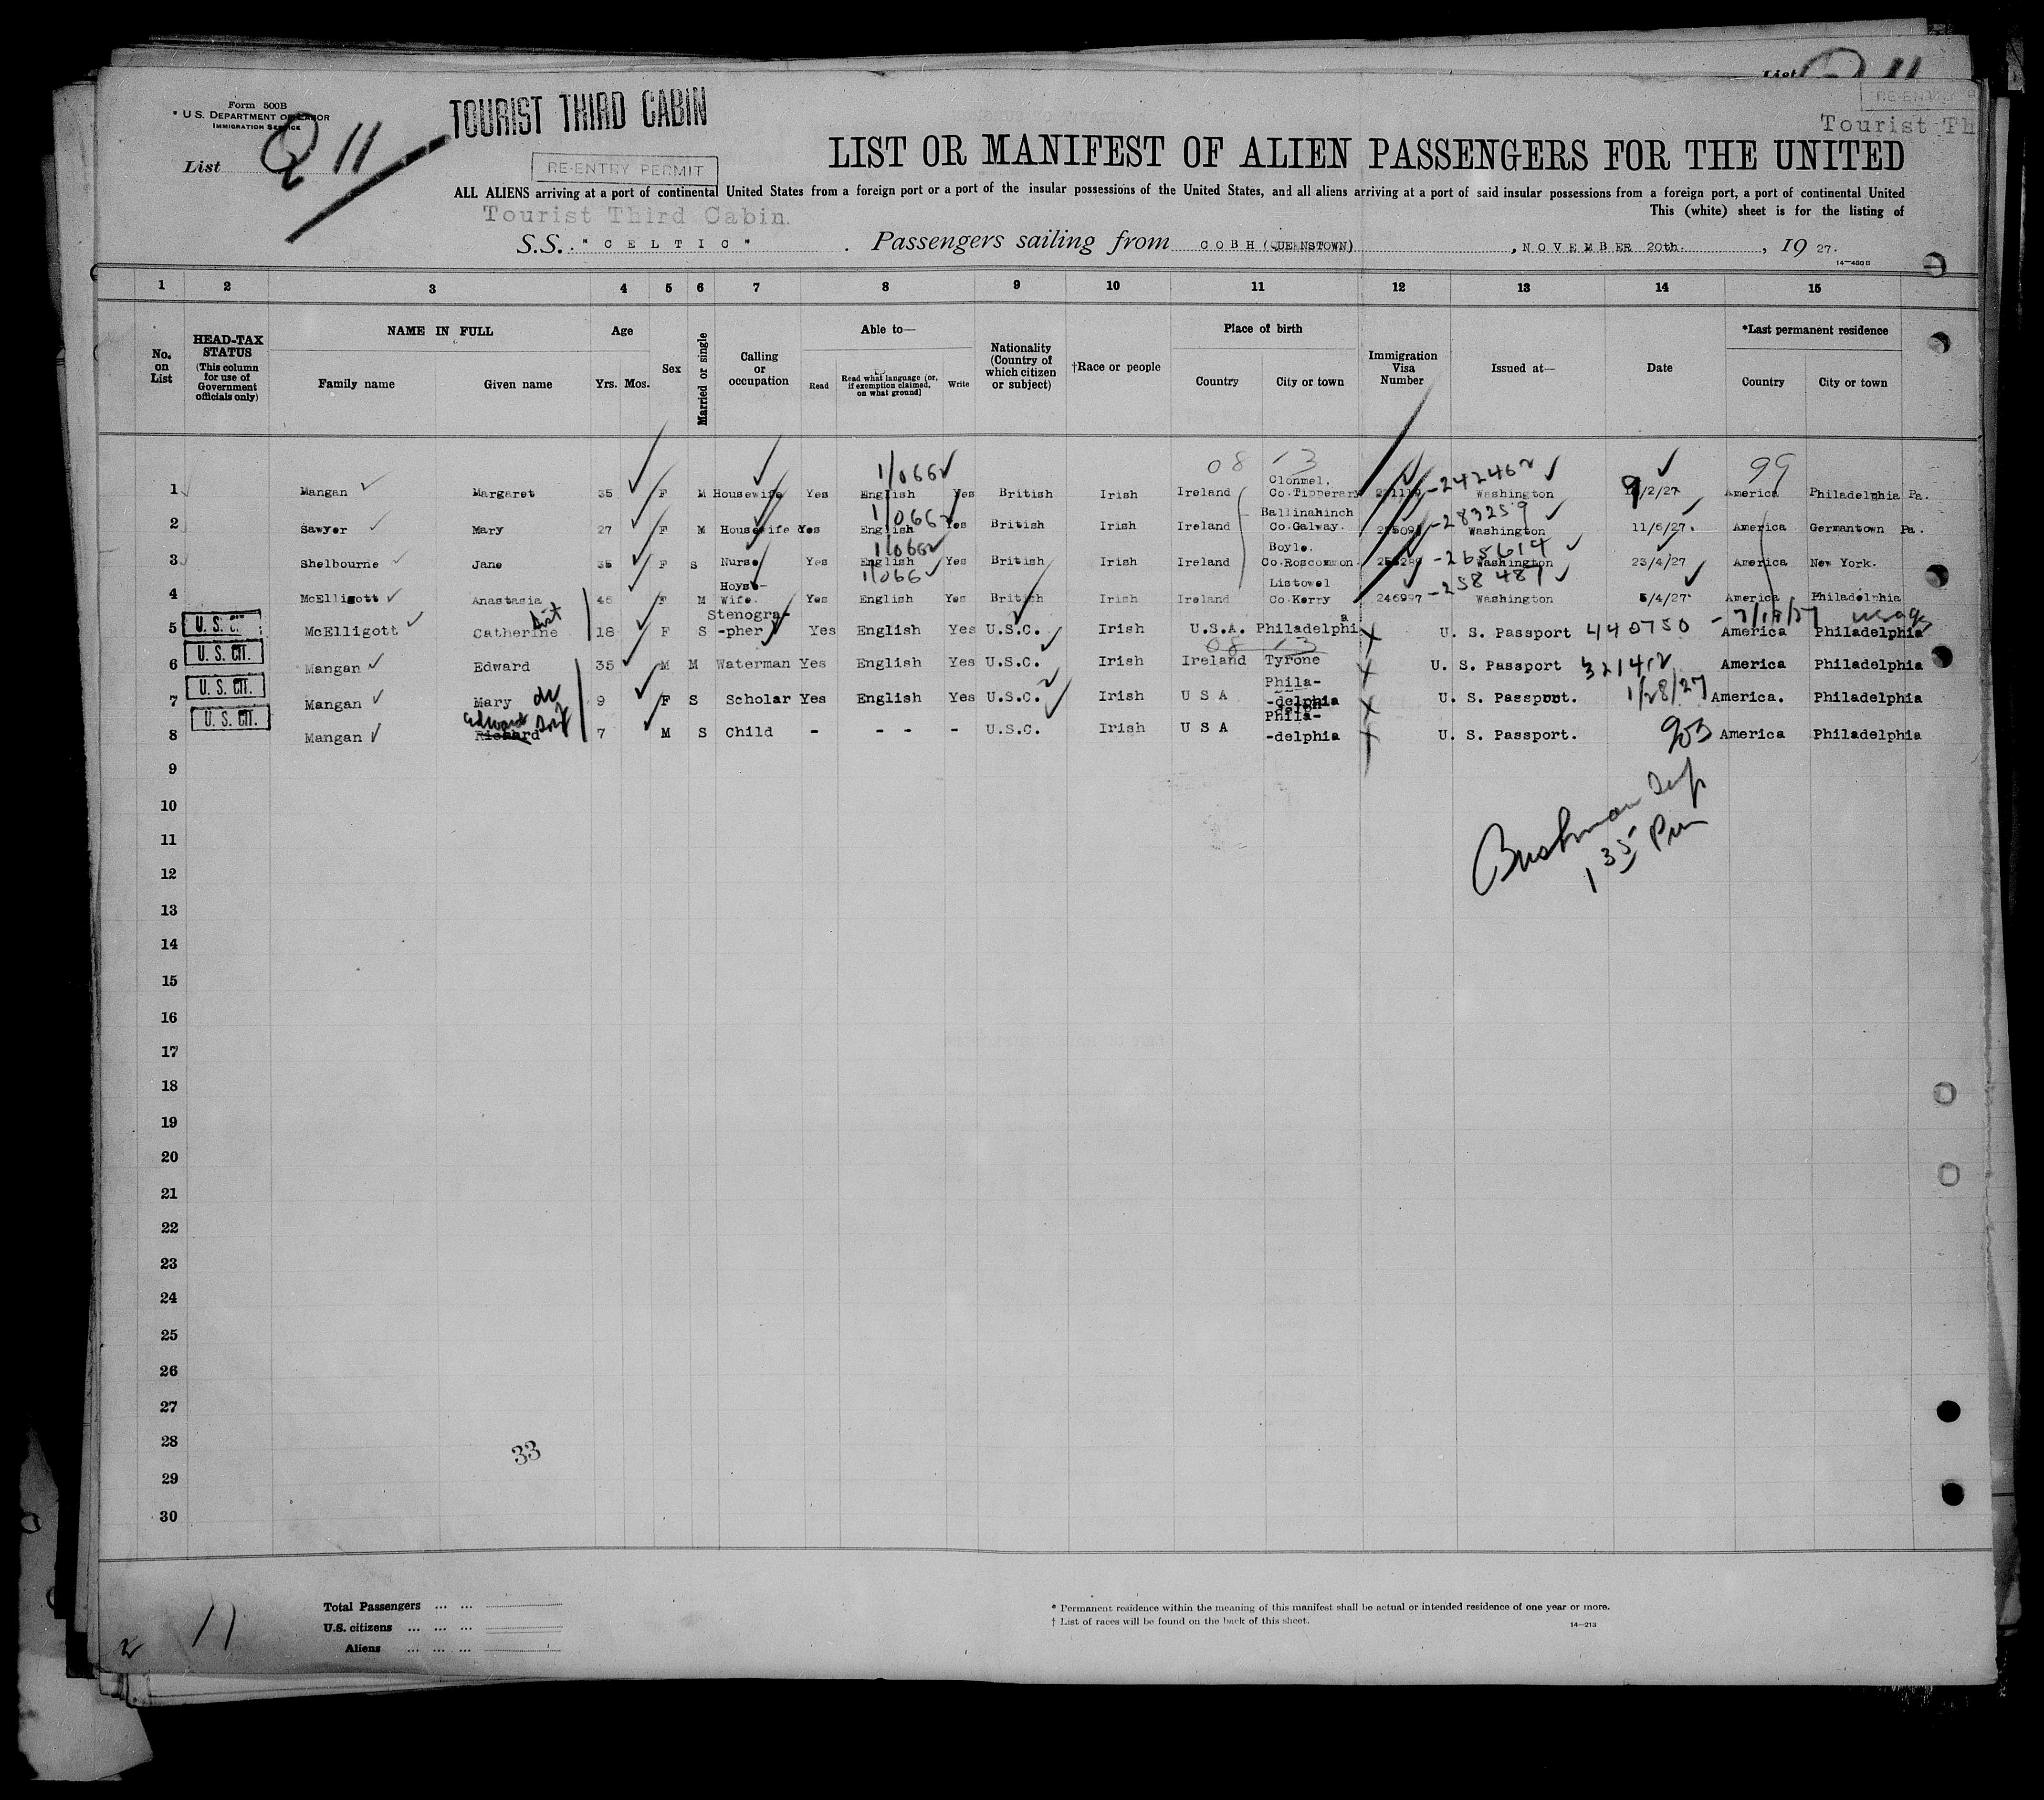 List Q 11
RE-ENTRY
Tourist Th
Form 500B
* U. S. DEPARTMENT OF LABOR
IMMIGRATION SERVICE
TOURIST THIRD CABIN
List Q 11
RE-ENTRY PERMIT
LIST OR MANIFEST OF ALIEN PASSENGERS FOR THE UNITED
ALL ALIENS arriving at a port of continental United States from a foreign port or a port of the insular possessions of the United States, and all aliens arriving at a port of said insular possessions from a foreign port, a port of continental United
This (white) sheet is for the listing of
Tourist Third Cabin.
S.S. "CELTIC" . Passengers sailing from COBH (QUEENSTOWN) , NOVEMBER 20th. , 19 27.
14-480 B
1 2 3 4 5 6 7 8 9 10 11 12 13 14 15
No. on List
HEAD-TAX STATUS (This column for use of Government officials only)
NAME IN FULL
Family name Given name
Age
Yrs. Mos.
Sex
Married or single
Calling or occupation
Able to—
Read Read what language (or, if exemption claimed, on what ground) Write
Nationality (Country of which citizen or subject)
†Race or people
Place of birth
Country City or town
Immigration Visa Number
Issued at—
Date
*Last permanent residence
Country City or town
1/066 08 13 -242462 99
1 Mangan Margaret 35 F M Housewife Yes English Yes British Irish Ireland Clonmel. Co.Tipperary Washington /2/27 America Philadelphia Pa.
1/066 -283259
2 Sawyer Mary 27 F M Housewife Yes English Yes British Irish Ireland Ballinahinch Co.Galway. Washington 11/6/27. America Germantown Pa.
1/066 -265614
3 Shelbourne Jane 35 F S Nurse Yes English Yes British Irish Ireland Boyle. Co.Roscommon. Washington 23/4/27 America New York.
1/066 -258487
4 McElligott Anastasia 46 F M Hoyse- Wife. Yes English Yes British Irish Ireland Listowel Co.Kerry 246997 Washington 5/4/27 America Philadelphia
5 U. S. C. McElligott Catherine 18 F S Stenogra- -pher Yes English Yes U.S.C. Irish U.S.A. Philadelphia U. S. Passport 440750 - 7/19/27 America Philadelphia
08 13
6 U. S. CIT. Mangan Edward 35 M M Waterman Yes English Yes U.S.C. Irish Ireland Tyrone U. S. Passport 321412 America Philadelphia
7 U. S. CIT. Mangan Mary 9 F S Scholar Yes English Yes U.S.C. Irish U S A Phila- -delphia U. S. Passport. 1/28/27 America. Philadelphia
Edward
8 U. S. CIT. Mangan Richard 7 M S Child - - - - U.S.C. Irish U S A Phila- -delphia U. S. Passport. America Philadelphia
9
10
11
Bushman
12
1 35 Pm
13
14
15
16
17
18
19
20
21
22
23
24
25
26
27
28
33
29
30
Total Passengers ... ...
U.S. citizens ... ... ...
Aliens ... ... ...
* Permanent residence within the meaning of this manifest shall be actual or intended residence of one year or more.
† List of races will be found on the back of this sheet.
14-213
11
2